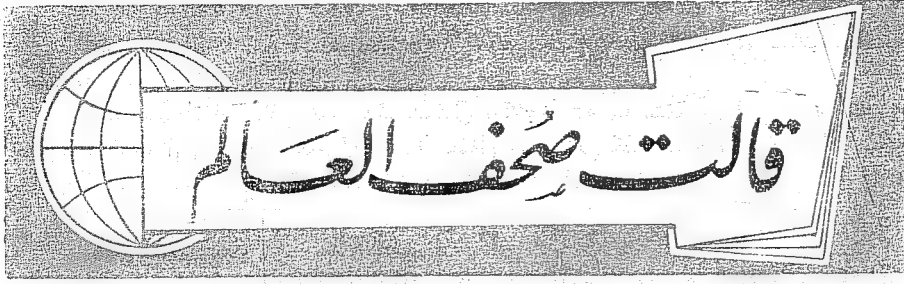 قالت صُحف العَالم